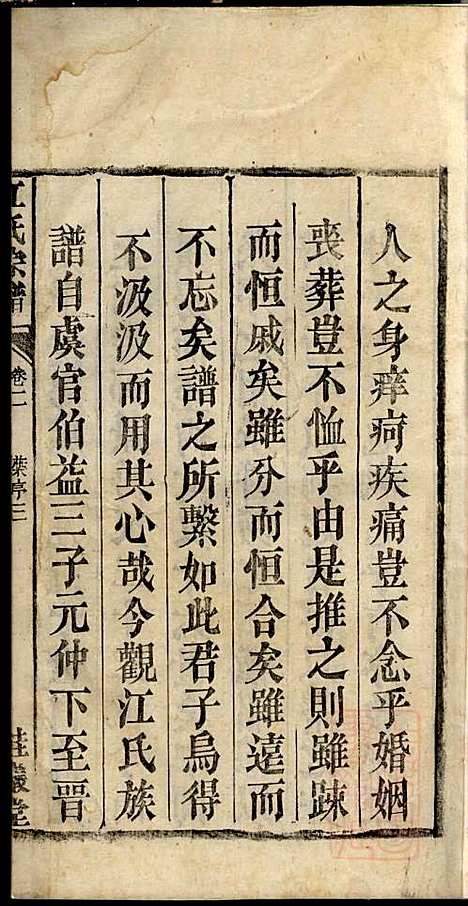 人之身痒疴疾痛豈不念乎婚姻
喪葬豈不恤乎由是推之則雖踈
而恒戚矣雖分而恒合矣雖遠而
不忘矣譜之所繫如此君子烏得
不汲汲而用其心哉今觀江氏族
譜自虞官伯益三子元仲下至晉
江氏宗譜
卷二
葉亭三